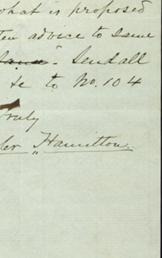 what is proposed
ten advice to same
Sendall
te to No. 104
truly
Hamilton